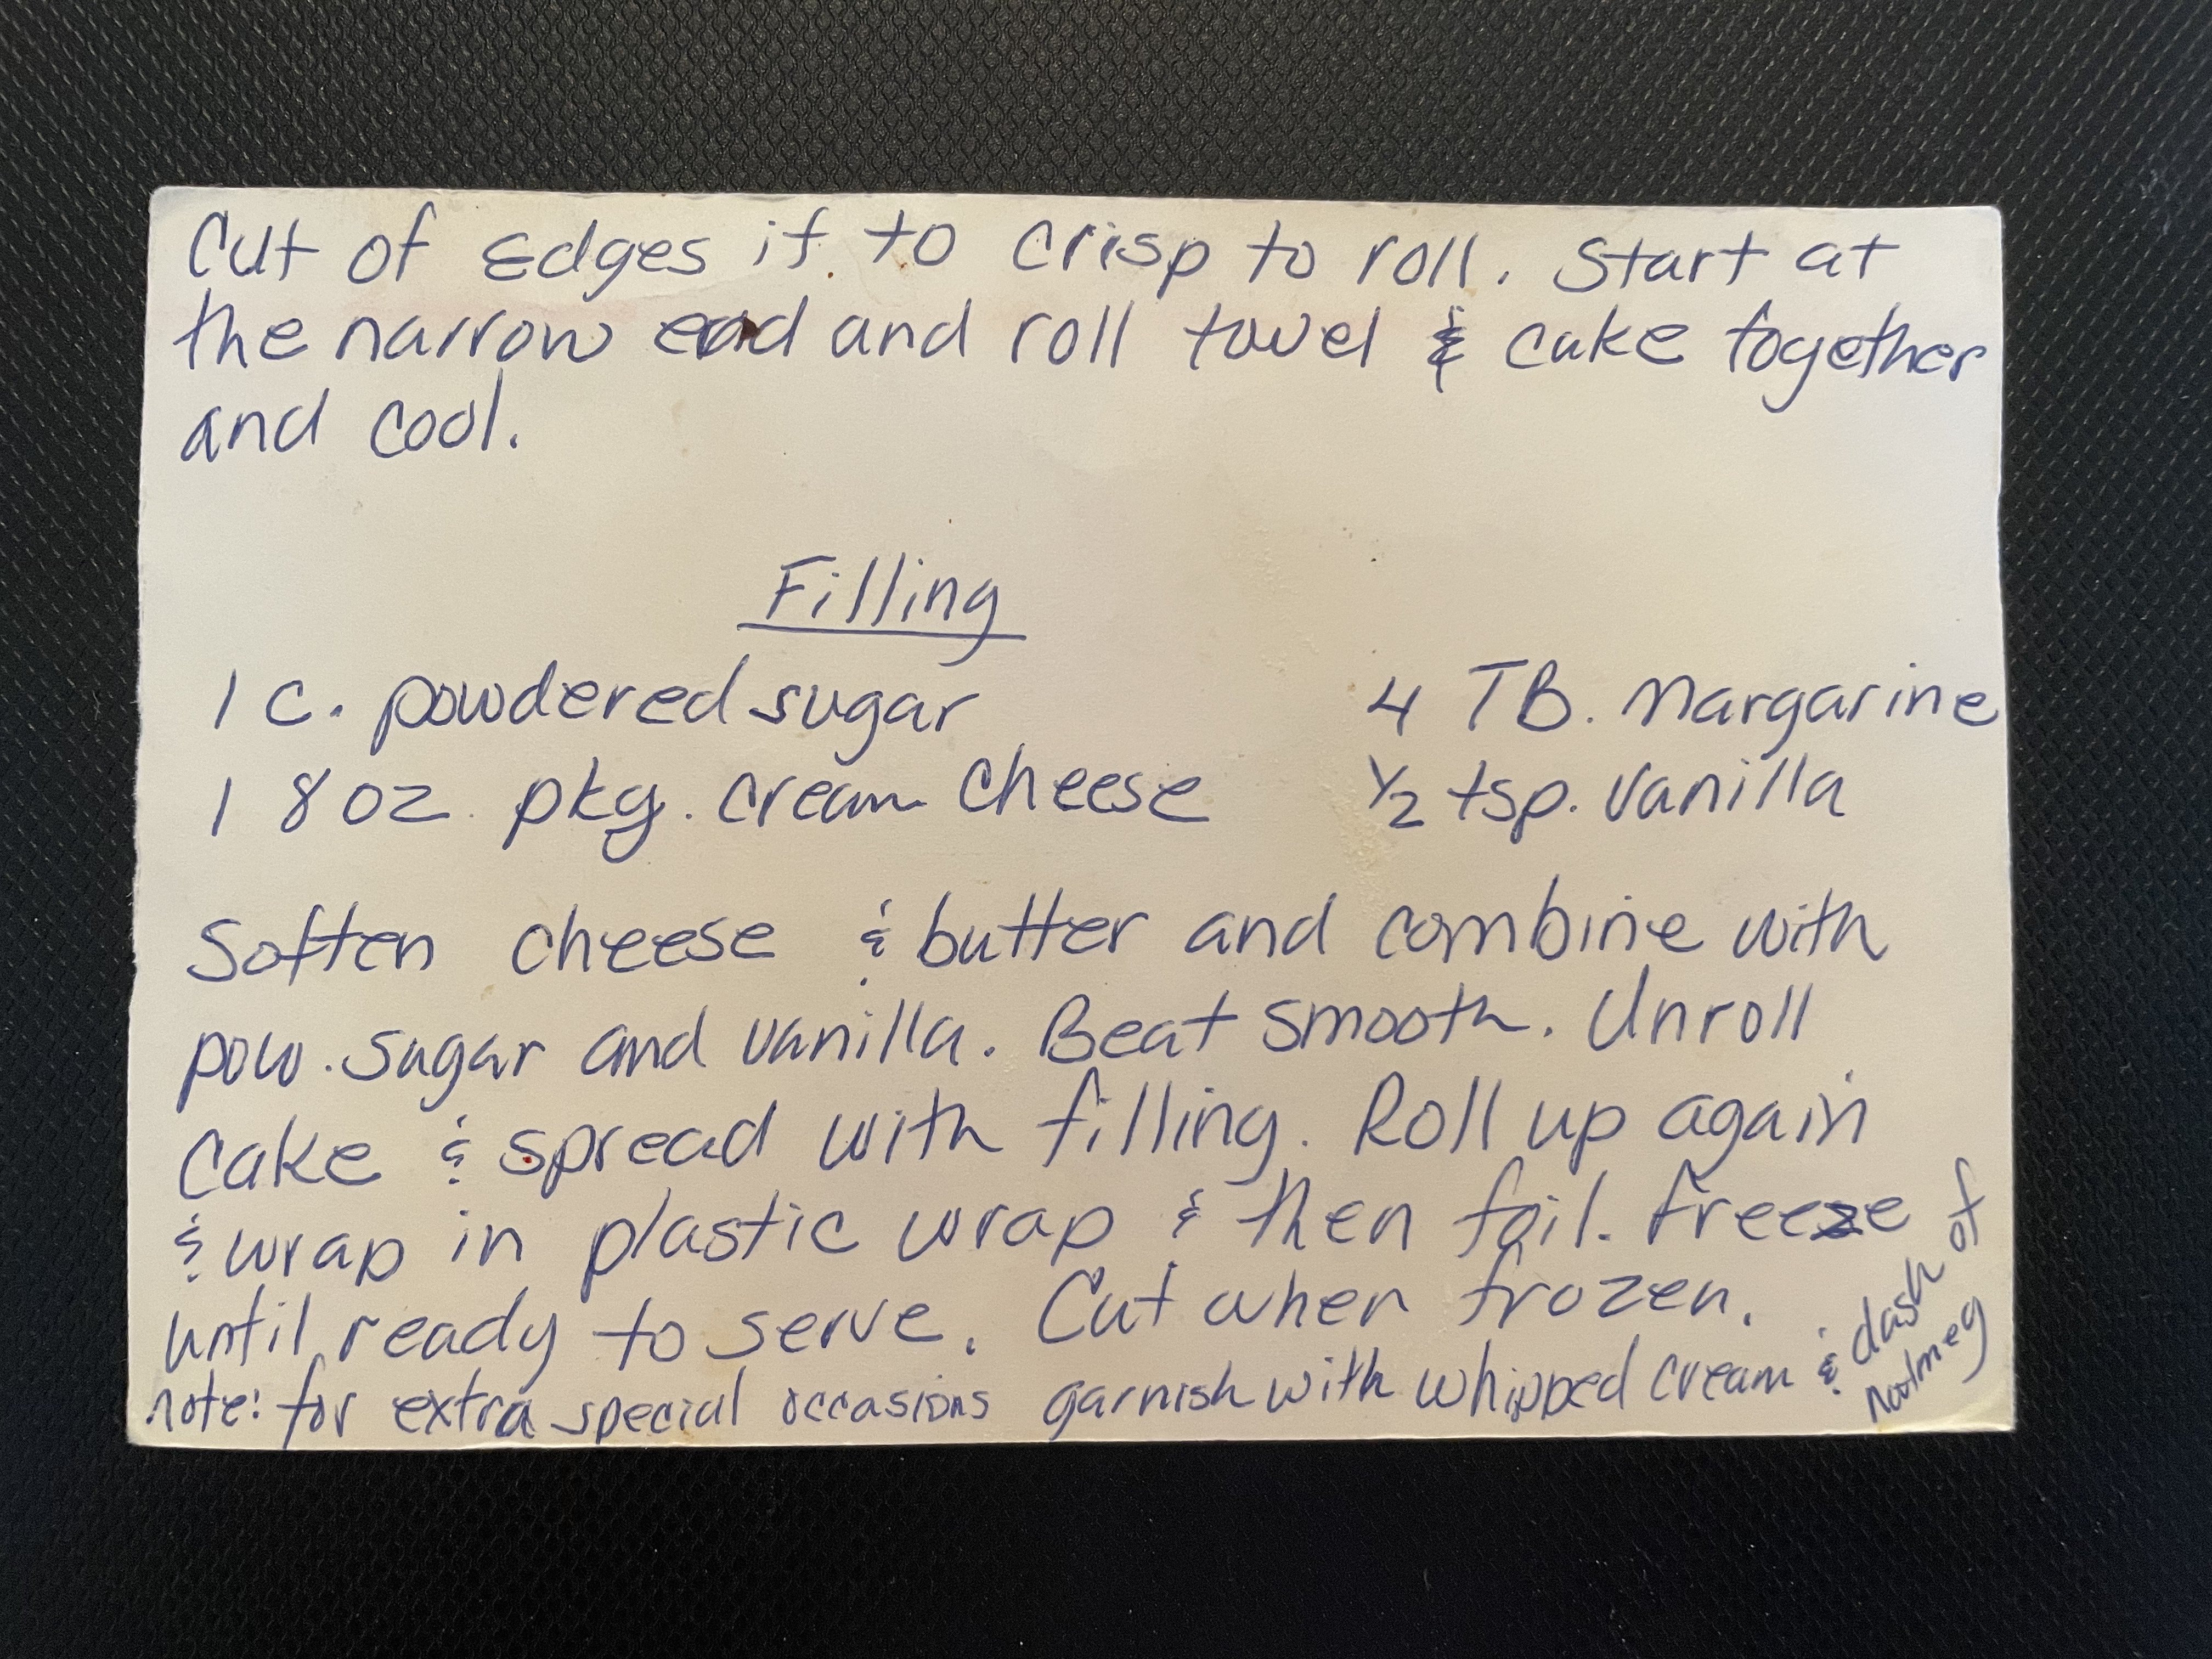 Cut of Edges if to crisp to roll. Start at
the narrow end and roll towel & cake together
and cool.
Filling
1 c. powdered sugar 4 TB. Margarine
1 8 oz. pkg. cream cheese ½ tsp. vanilla
Soften cheese & butter and combine with
pow. sugar and vanilla. Beat smooth. Unroll
cake & spread with filling. Roll up again
& wrap in plastic wrap & then foil. Freeze
until ready to serve. Cut when frozen.
note: for extra special occasions garnish with whipped cream & dash of
nootmeg